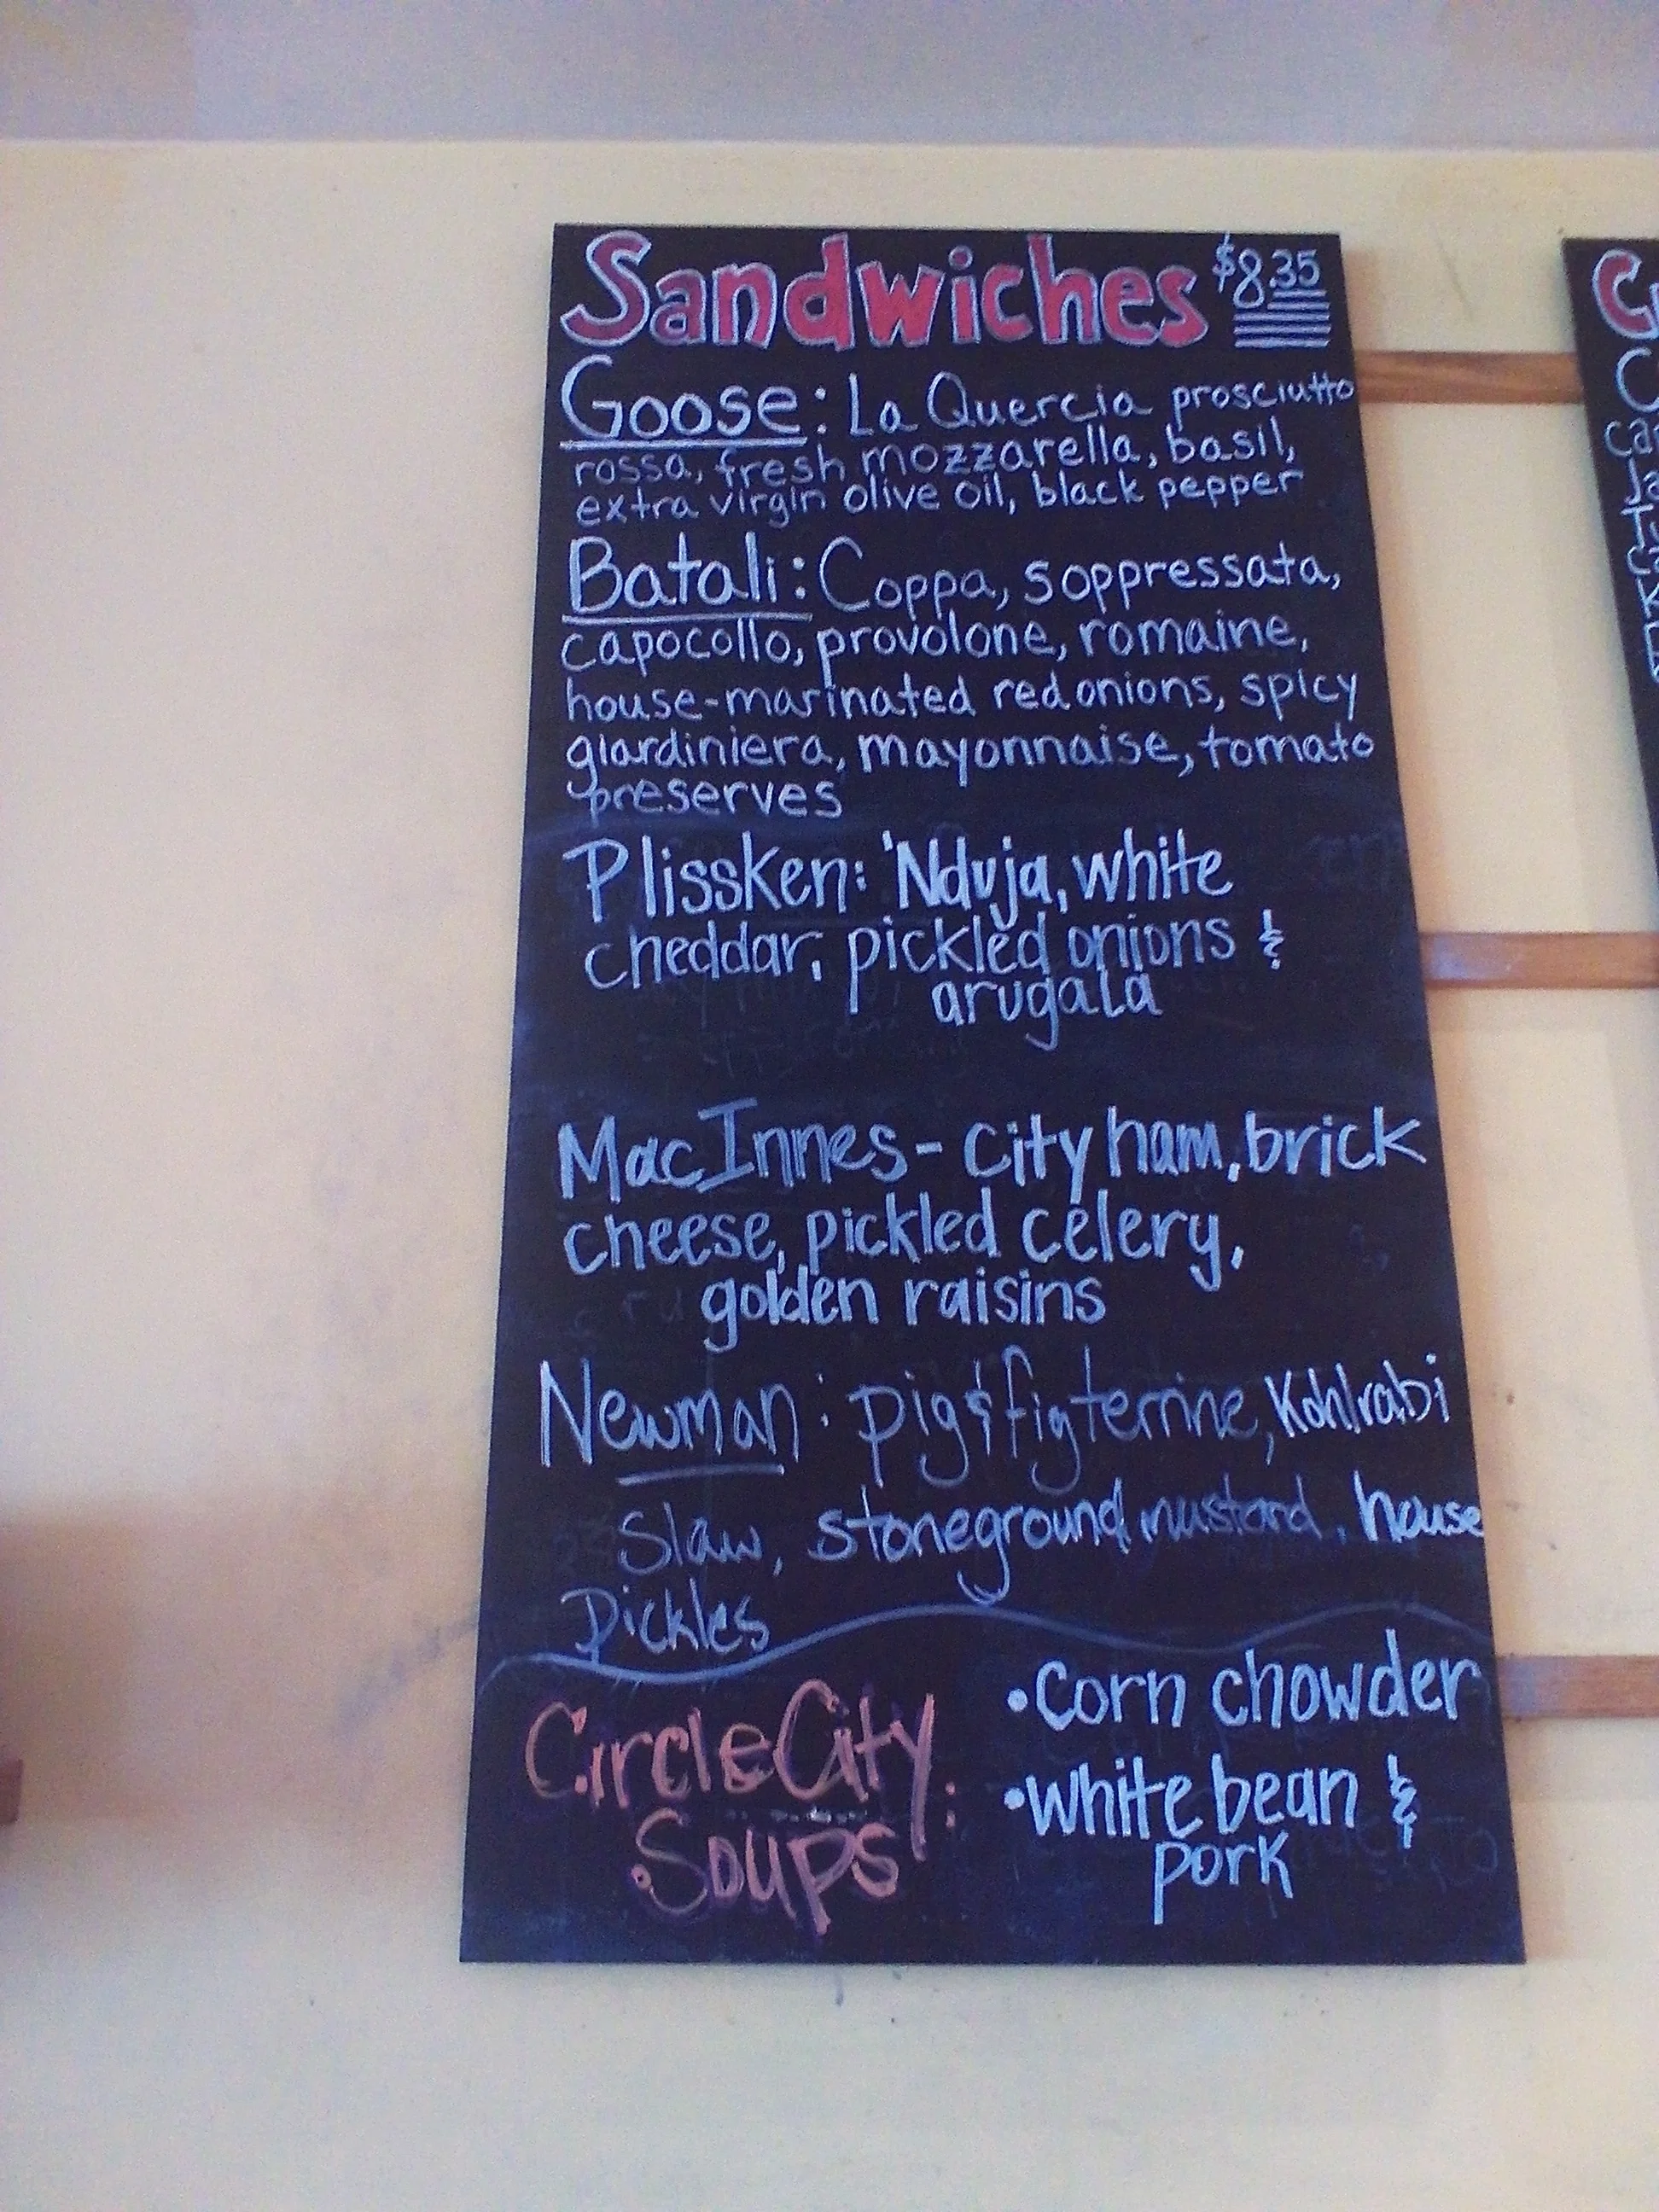 Sandwiches $8.35
Goose: La Quercia prosciutto
rossa, fresh mozzarella, basil,
extra virgin olive oil, black pepper
Batali: Coppa, soppressata,
capocollo, provolone, romaine,
house-marinated red onions, spicy
giardiniera, mayonnaise, tomato
preserves
Plissken: 'Nduja, white
cheddar, pickled onions &
arugala
MacInnes - City ham, brick
cheese, pickled celery,
golden raisins
Newman: pig & fig terrine, Kohlrabi
Slaw, stoneground mustard, house
Pickles
Circle City
Soups:
• Corn chowder
• White bean &
pork